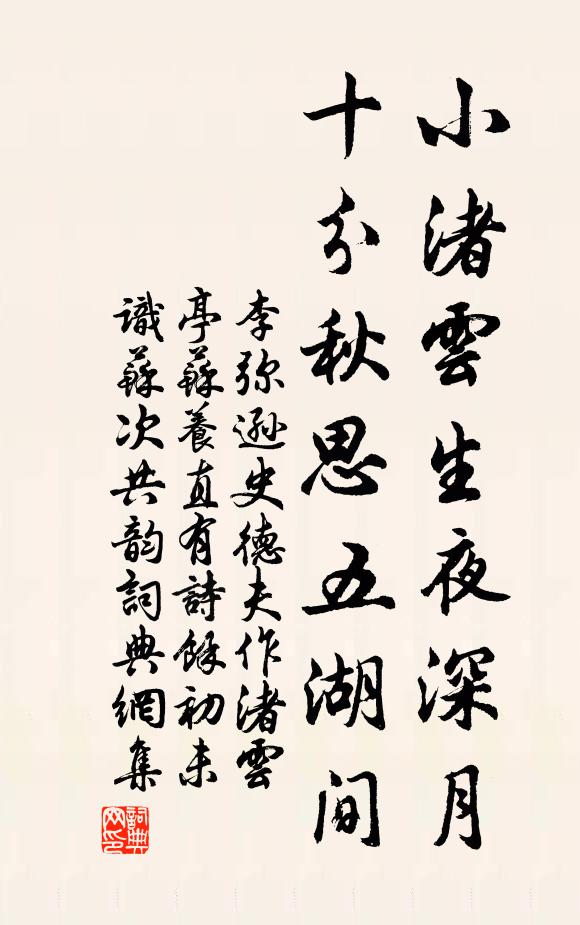 小渚雲生夜深月
十分秋思五湖間
李弥遜史德夫作渚雲
亭蘇養直有詩餘初未
識蘇次共韵詞典網集
詞典網印